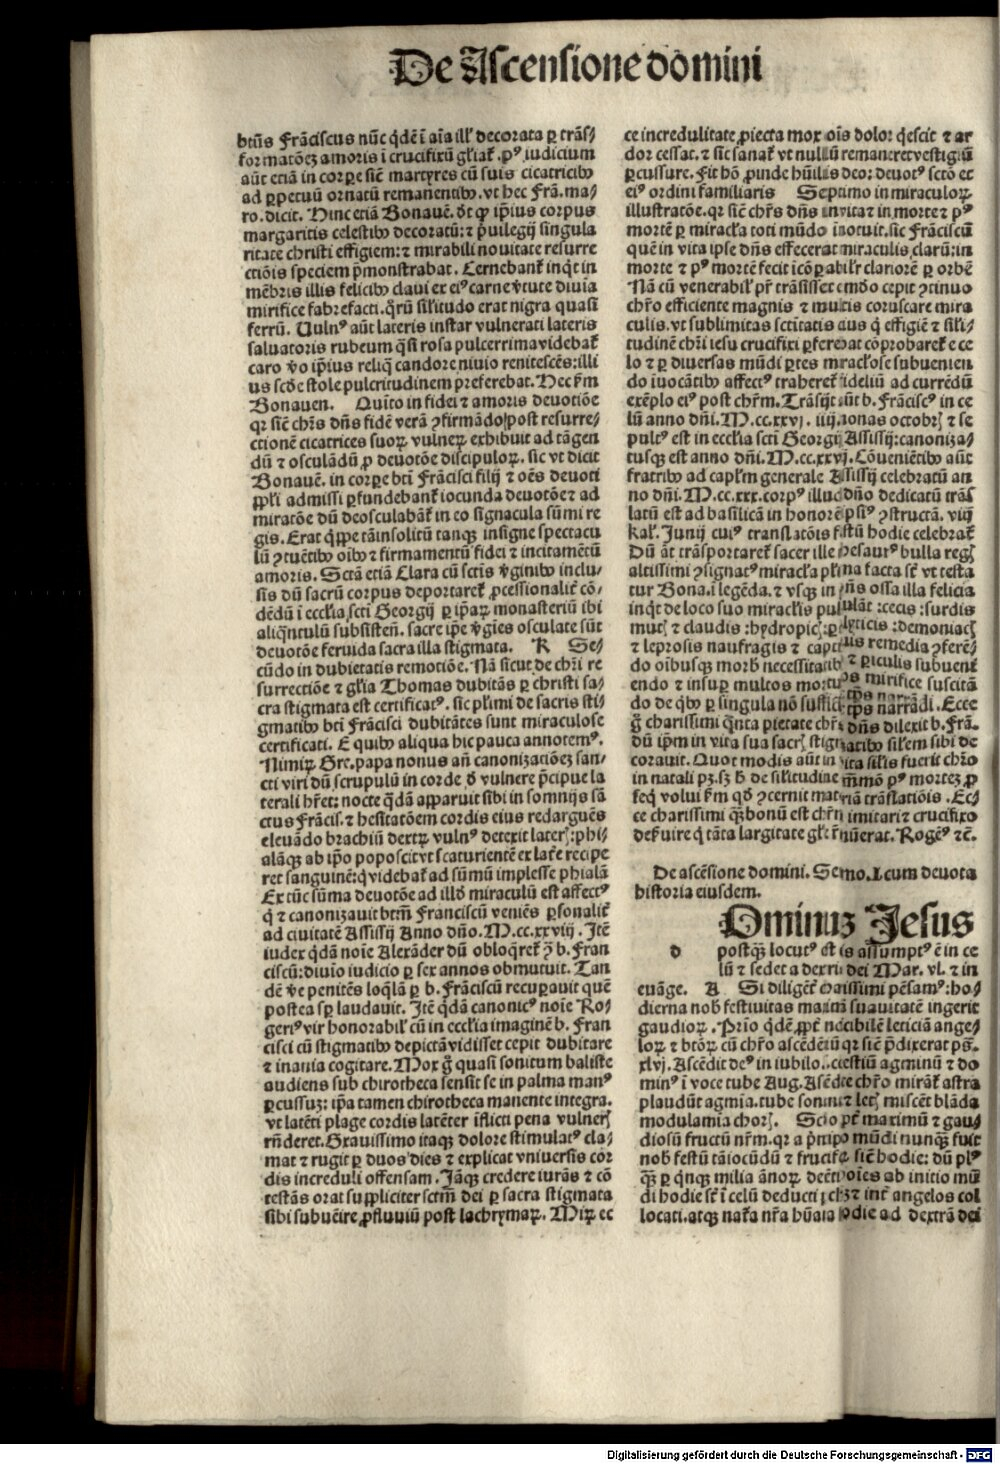 De Ascensione domini
btūs Frāciscus nūc qdē ī aīa illꝰ decorata ꝑ trās/
formatōeꝫ amoris ī crucifixū gl̄iat̄. pꝰ iudicium
aūt etiā in corꝑe sic̄ martyres cū suis cicatricibꝰ
ad ꝑpetuū ornatū remanentibꝰ. vt hec Frā. ma/
ro. dicit. Hinc etiā Bonauē. dt̄ ꝙ ip̄ius corpus
margaritis celestibꝰ decoratū: ⁊ p̄uilegij singula
ritate christi effigiem: ⁊ mirabili nouitate resurre
ctiōis speciem p̄monstrabat. Cernebant̄ inqͥt in
mēbris illis felicibꝰ claui ex eiꝰ carne v̄tute diuīa
mirifice fabrefacti. qͣrū sil̄itudo erat nigra quasi
ferrū. Uulnꝰ aūt lateris instar vulnerati lateris
saluatoris rubeum qͣsi rosa pulcerrima videbat̄
caro v̄o ip̄ius reliqͣ candore niuio renitescēs: illi
us scd̄e stole pulcritudinem preferebat. Hec s̄m
Bonauen. Quīto in fidei ⁊ amoris deuotiōe
qꝛ sic̄ chr̄s dn̄s fidē verā ꝯfirmādo post resurre/
ctionē cicatrices suoꝝ vulneꝝ exhibuit ad tāgen
dū ⁊ osculādū ꝓ deuotōe discipuloꝝ. sic vt dicit
Bonauē. in corꝑe bt̄i Frācisci filij ⁊ oēs deuoti
ppl̄i admissi ꝑfundebant̄ iocunda deuotōe ⁊ ad
miratōe dū deosculabāt̄ in eo signacula sūmi re
gis. Erat qͥppe tāinsolitū tanqꝫ insigne spectacu
lū ꝯtuētibꝰ oībꝰ ⁊ firmamentū fidei ⁊ incitamētū
amoris. Sctā etiā Clara cū sctīs v̄ginibꝰ inclu/
sis dū sacrū corpus deportaret̄ ꝓcessionalit̄ cō/
dēdū ī eccl̄ia sctī Georgij ꝑ ip̄aꝝ monasteriū ibi
aliqͣntulū subsisten̄. sacre ip̄e v̄gīes osculate sūt
deuotōe feruida sacra illa stigmata. K Se/
cūdo in dubietatis remotiōe. Nā sicut de chr̄i re
surrectiōe ⁊ gl̄ia Thomas dubitās ꝑ christi sa/
cra stigmata est certificatꝰ. sic pl̄imi de sacris sti/
gmatibꝰ bt̄i Frācisci dubitātes sunt miraculose
certificati. E quibꝰ aliqua hic pauca annotemꝰ.
Nimiꝝ Gre. papa nonus an̄ canonizatiōeꝫ san/
cti viri dū scrupulū in corde d̄ vulnere p̄cipue la
terali hr̄et: nocte qͣdā apparuit sibi in somnijs sā
ctus Frācis. ⁊ hesitatōem cordis eius redarguēs
eleuādo brachiū dextꝝ vulnꝰ detexit laterꝫ: phi/
alāqꝫ ab ip̄o poposcit vt scaturientē ex lat̄e recipe
ret sanguinē: qͣ videbat̄ ad sūmū implesse phialā
Ex tūc sūma deuotōe ad illd̄ miraculū est affectꝰ
qͥ ⁊ canonizauit bt̄m Franciscū veniēs ꝑsonalit̄
ad ciuitatē Assisij Anno dn̄o. M.cc.xxviij. Itē
iudex qͥdā noīe Alexāder dū obloqͣret̄ ꝯ b. Fran
ciscū: diuīo iudicio ꝑ sex annos obmutuit. Tan
dē v̄e penitēs loq̄lā ꝑ b. Frāciscū recuꝑauit quē
postea sꝑ laudauit. Itē qͥdā canonicꝰ noīe Ro/
geriꝰ vir honorabil̄ cū in eccl̄ia imaginē b. Fran
cisci cū stigmatibꝰ depictā vidisset cepit dubitare
⁊ inania cogitare. Mox g̊ quasi sonitum baliste
audiens sub chirotheca sensit se in palma manꝰ
ꝑcussuꝫ: ip̄a tamen chirotheca manente integra.
vt latēti plage cordis latēter īflicti pena vulnerꝫ
rn̄deret. Grauissimo itaqꝫ dolore stimulatꝰ cla/
mat ⁊ rugit ꝑ duos dies ⁊ explicat vniuersis cor
dis increduli offensam. Jāqꝫ credere iurās ⁊ cō
testās orat suppliciter sctm̄ dei ꝑ sacra stigmata
sibi subuēire ꝓfluuiū post lachrymaꝝ. Miꝝ ec
ce incredulitate ꝓiecta mox oīs dolor qͥescit ⁊ ar
dor cessat. ⁊ sic sanat̄ vt nullū remaneret vestigiū
ꝑcussure. Fit hō ꝓinde hūilis deo: deuotꝰ sctō et
eiꝰ ordini familiaris Septimo in miraculoꝝ
illustratōe. qꝛ sic̄ chr̄s dn̄s in vita ⁊ in morte ⁊ pꝰ
mortē ꝑ miracl̄a toti mūdo inotuit. sic Frāciscū
quē in vita ipse dn̄s effecerat miraculis clarū: in
morte ⁊ pꝰ mortē fecit icōꝑabilr̄ clariorē ꝑ orbē
Nā cū venerabil̄ pr̄ trāsisset e mūdo cepit ꝯtinuo
chr̄o efficiente magnis ⁊ multis coruscare mira
culis. vt sublimitas sctītatis eius qͥ effigiē ⁊ sil̄i/
tudinē chr̄i iesu crucifixi ꝑferebat cōprobaret̄ e ce
lo ⁊ ꝑ diuersas mūdi ꝑtes miracl̄ose subuenien
do iuocātibꝰ affectꝰ traheret̄ fideliū ad currēdū
exēplo eiꝰ post chr̄m. Trāsijt aūt b. Frāciscꝰ in ce
lū anno dn̄i. M.cc.xxvj. iiij. nonas octobrꝫ ⁊ se
pultꝰ est in eccl̄ia sctī Georgij Assisij: canoniza/
tusqꝫ est anno dn̄i. M.cc.xxvij. Cōueniētibꝰ aūt
fratribꝰ ad capl̄m generale Assisij celebratū an
no dn̄i. M.cc.xxx. corpꝰ illud dn̄o dedicatū trās
latū est ad basilicā in honorē ipsiꝰ ꝯstructā. viij
kal̄. Junij cuiꝰ translatōis festū hodie celebrat̄
Dū āt trāsportaret̄ sacer ille thesaurꝰ bulla regꝫ
altissimi ꝯsignatꝰ miracl̄a pl̄ima facta sūt vt testa
tur Bona. i legēda. ⁊ vsqꝫ in
inqͥt de loco suo miracl̄is
mutꝫ ⁊ claudis: hydropicꝫ:
⁊ leprosis naufragis ⁊
do oībusqꝫ morbꝰ necessitatibꝰ
endo ⁊ insuꝑ multos
do de qͥbꝰ ꝑ singula nō
g̊ charissimi qͣnta pietate chr̄s
dū ip̄m in vita sua sacrꝫ
corauit. Quot modis aūt in
in natali pꝫ. sꝫ h̄ de sil̄itudine
seqͥ volui s̄m qd̄ ꝯcernit
ce charissimi qͣꝫbonū est chr̄m imitari ⁊ crucifixo
des̄uire qͥ tāta largitate
De ascēsione domini. Sermo. I. cum deuota
historia eiusdem.
Ominus Jesus
d postqꝫ locutꝰ est is assumptꝰ ē in ce
lū ⁊ sedet a dextris dei Mar. vl. ⁊ in
euāge. A Si diligēt̄ charissimi pēsamꝰ: ho/
dierna nob̄ festiuitas maximā suauitatē ingerit
gaudioꝝ. Prīo qͥdē ꝓpt̄ nobilē leticiā ange/
loꝝ ⁊ btōꝝ cū chr̄o ascēdētiū qꝛ sic̄ p̄dixerat ps̄.
xlvj. Ascēdit deꝰ in iubilo. celestiū agminū ⁊ do
minꝰ ī voce tube Aug. Ascēdēte chr̄o mirāt̄ astra
plaudūt agmīa. tube sonāt ⁊ letꝫ miscēt blāda
modulamia chorꝫ. Scd̄o pt̄ maximū ⁊ gau/
diosū fructū nr̄m. qꝛ a p̄ncipio mūdi nunqꝫ fuit
nob̄ festū tā iocūdū ⁊ fructifeꝝ sic̄ hodie: dū plꝰ
qꝫ ꝑ qͥnqꝫ milia ānoꝝ detēti oīes ab initio mū
di hodie sūt ī celū deducti ꝑ chr̄m ⁊ int̄ angelos col
locati. atqꝫ nat̄a nr̄a hūaīa hodie ad dextrā dei
Digitalisierung gefördert durch die Deutsche Forschungsgemeinschaft - DFG